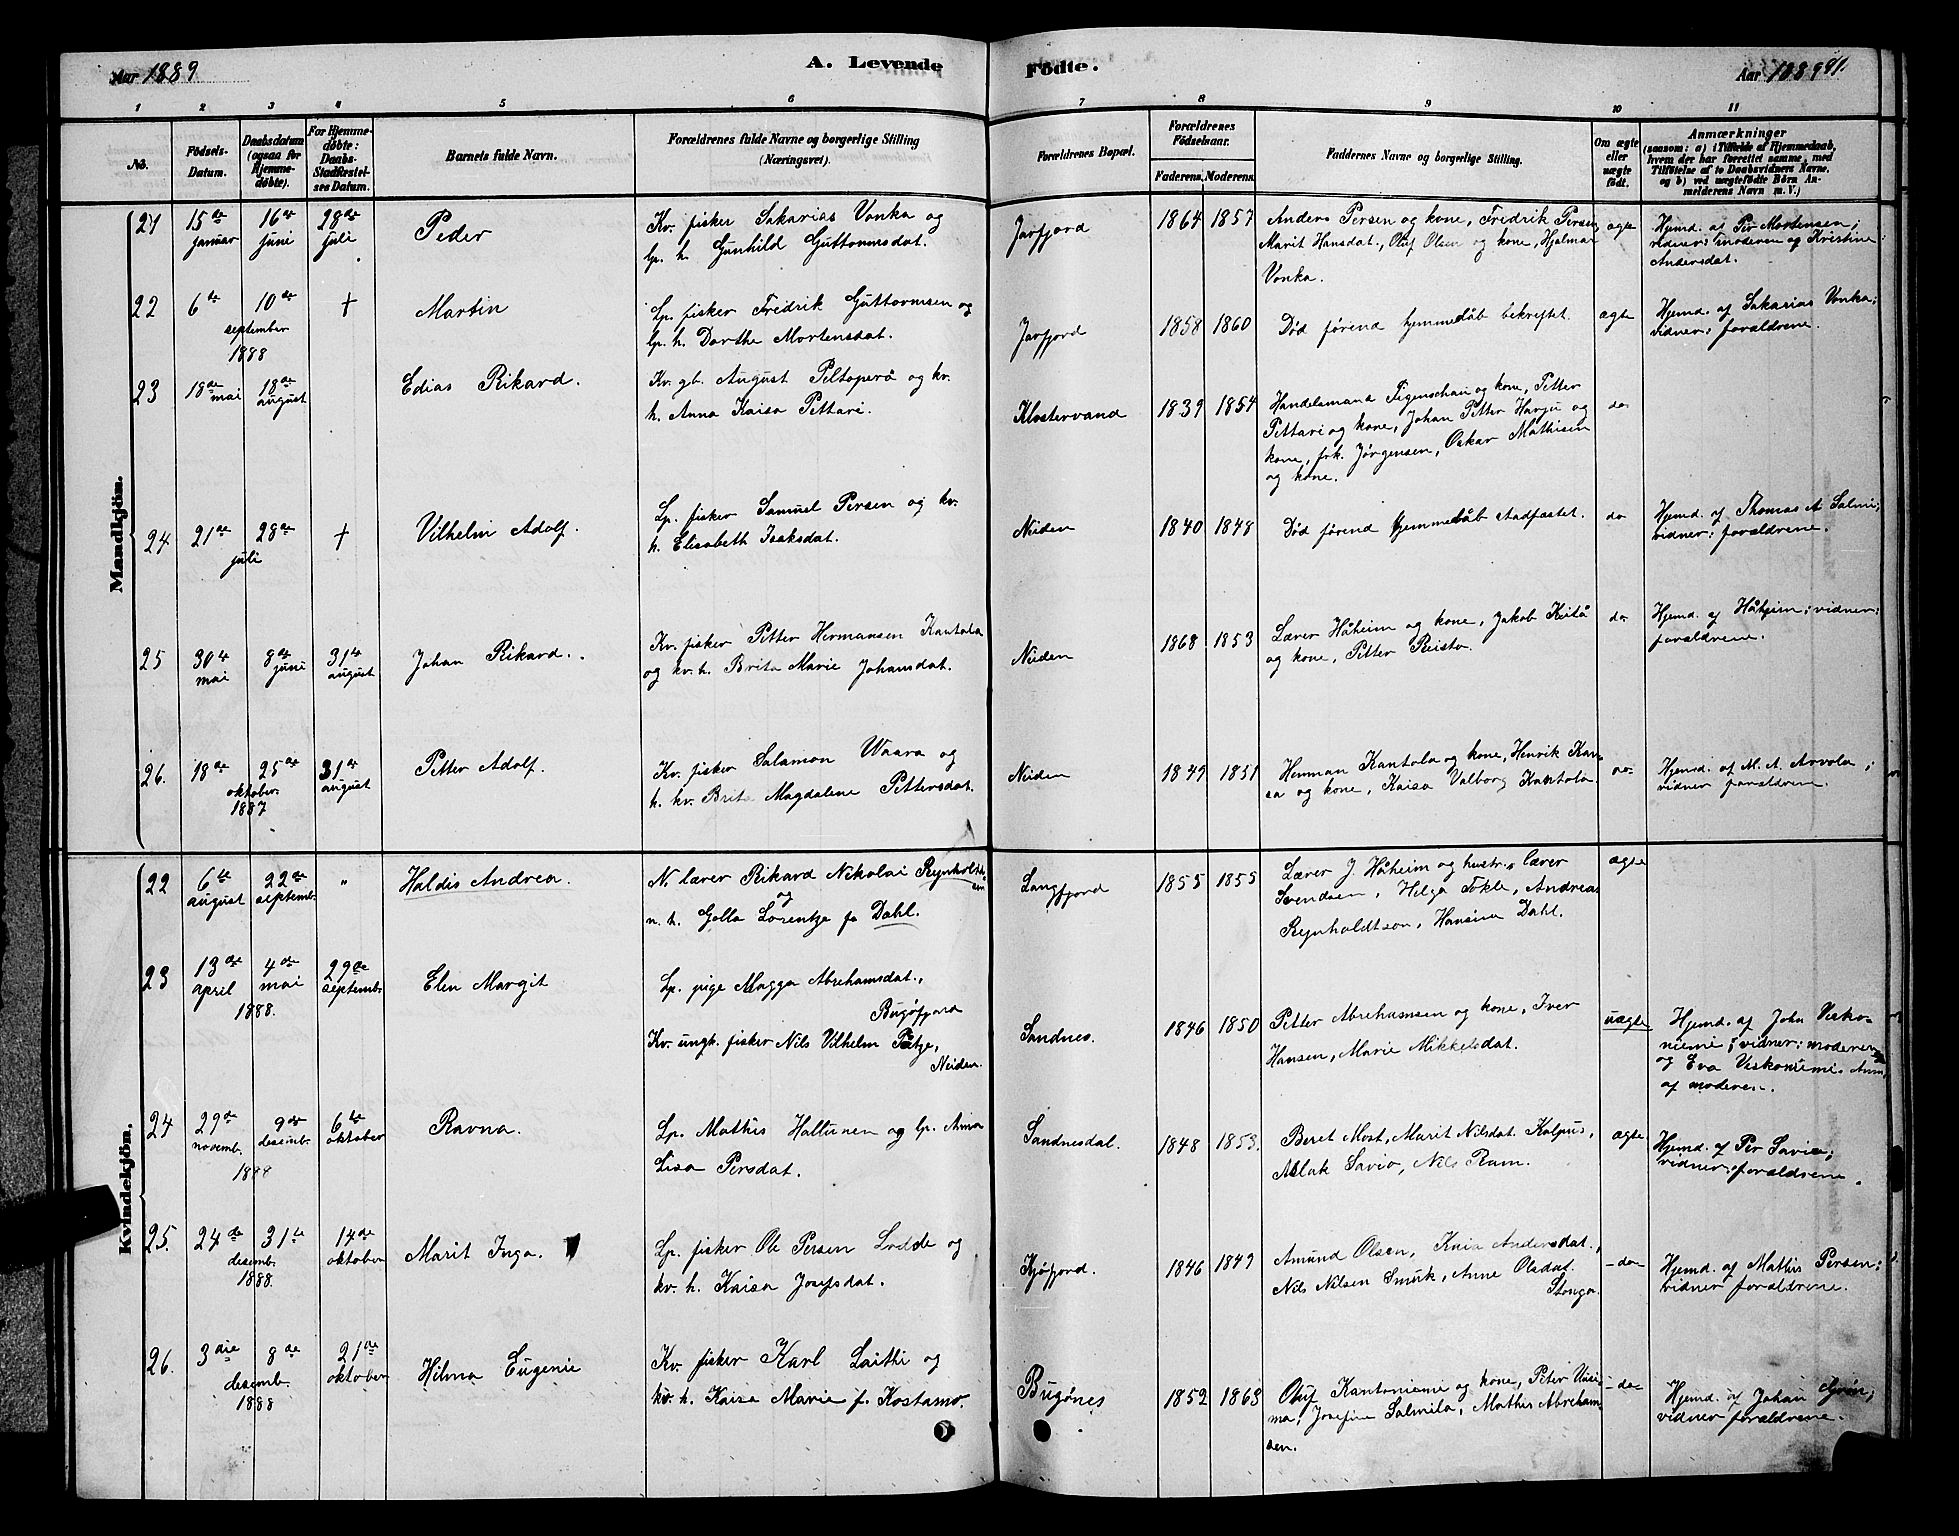 Aar 1889
A. Levende
Födte.
Aar 1889 91.
1 2 3 4 5 6 7 8 9 10 11
No.
Födsels-
Datum.
Daabsdatum
(ogsaa for
Hjemme-
døbte).
For Hjemme-
døbte:
Daabs-
Stadfæstel-
ses Datum.
Barnets fulde Navn.
Forældrenes fulde Navne og borgerlige Stilling
(Næringsvei).
Forældrenes Bopæl.
Forældrenes
Fødselsaar.
Faderens. Moderens.
Faddernes Navne og borgerlige Stilling.
Om ægte
eller
uægte
født.
Anmærkninger
(saasom: a) i Tilfælde af Hjemmedaab,
hvem der har forrettet samme, med
Tilføielse af to Daabsvidners Navne,
og b) ved uægtefødte Børn An-
melderens Navn m. V.)
Mandkjön.
21 15de januar 16de juni 28de juli
Peder
Kv. fisker Sakarias Vonka og
lp. h. Gunhild Guttormsdat.
Jarfjord
1864 1857
Anders Persen og kone, Fredrik Persen,
Marit Hansdat., Oluf Olsen og kone, Hjalmar
Vonka.
ægte
Hjemd. af Per Mortensen;
vidner: moderen og Kristine
Andersdat.
22 6te 10de september 1888 †
Martin
Lp. fisker Fredrik Guttormsen og
lp. h. Dorthe Mortensdat.
Jarfjord
1858 1860
Død førend hjemmedåb bekræftet.
ægte
Hjemd. af Sakarias Vonka;
vidner: forældrene.
23 18de mai 18de august
Edias Rikard.
Kv. gb. August Peltoperä og kv.
h. Anna Kaisa Pettari.
Klostervand
1839 1854
Handelsmand Figenschau og kone, Petter
Pettari og kone, Johan Petter Harju og
kone, frk. Jørgensen, Oskar Mathisen
og kone.
do
24 21de 28de juli †
Vilhelm Adolf.
Lp. fisker Samuel Persen og kv.
h. Elisabeth Isaksdat.
Neiden
1840 1848
Død førend hjemmedåb stadfæstet.
do
Hjemd. af Thomas A Salmi;
vidner: forældrene.
25 30te mai 8de juni 31te august
Johan Rikard.
Kv. fisker Petter Hermansen Kantola
og kv. h. Brita Marie Johansdat.
Neiden
1868 1853
Lærer Håheim og kone, Jakob
og kone, Petter Reisto.
do
Hjemd. af Håheim; vidner:
forældrene.
26. 18de 25de oktober 1887 31te august
Petter Adolf.
Kv. fisker Salamon Waara og
h. kv. Brita Magdalene Pettersdat.
Neiden
1849 1851
Herman Kantola og kone, Henrik Kan-
sa og kone, Kaisa Valborg Kantola
do
Hjemd. af M. A. Arvola;
vidner forældrene.
Kvindekjön.
22 6te august 22de septemb. "
Haldis Andrea.
N. lærer Rikard Nikolai Reynholdt-
sen
og
n. h. Golla Lorentze fø Dahl.
Langfjord
1855 1855
Lærer J. Håheim og hustr., lærer
Svendsen, Helga Fokle, Andreas
Reynholdtson, Hansine Dahl.
ægte
23 13de april 4de mai 1888. 29de septemb.
Elen Margit
Lp. pige Magga Abrehamsdat.,
Bugøfjord
Kv. ungk. fisker Nils Vilhelm
Neiden.
Sandnes.
1846 1850
Petter Abrehamsen og kone, Iver
Hansen, Marie Mikkelsdat.
uægte
Hjemd. af John Vesko-
niemi; vidner: moderen
og Eva Veskoniemi. Anm.
af moderen.
24 29de novemb. 9de desemb. 1888 6te oktober
Ravna.
Lp. Mathis Hallunen og lp. Anna
Lisa Persdat.
Sandnesdal.
1848 1853.
Beret Most, Marit Nilsdat. Kalpus,
Aslak Savio, Nils Ram.
ægte
Hjemd. af Per Savio;
vidner: forældrene.
25. 24de 31te desemb. 1888. 14de oktober
Marit Inga.
Lp. fisker Ole Persen Lodde og
kv. h. Kaisa Josefsdat.
Kjøfjord.
1846 1849
Amund Olsen, Knia Andersdat.,
Nils Nilsen Smuk, Anne Olsdat.
Stonga.
-do-
Hjemd. af Mathis Persen;
vidner forældrene.
26. 3die 8de desemb. 1888 21de oktober
Hilma Eugenie
Kv. fisker Karl Laithi og
kv. h. Kaisa Marie f. Kostamo.
Bugønes
1852 1863
Oluf Kantoniemi og kone, Peter Uusi-
ma, Josefine Salmila, Mathis Abreham-
sen.
-do-
Hjemd. af Johan Grön;
vidner forældrene.